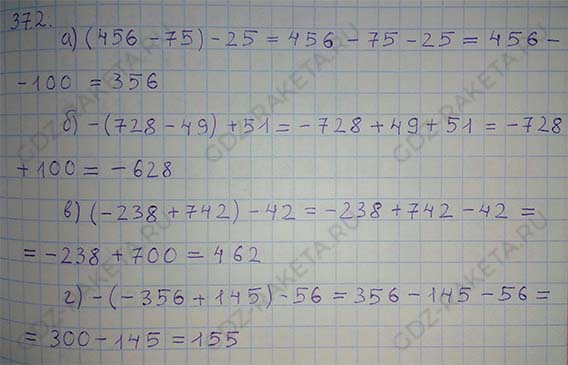 372.
а) (456 - 75) - 25 = 456 - 75 - 25 = 456 -
- 100 = 356
б) -(728 - 49) + 51 = -728 + 49 + 51 = -728
+ 100 = -628
в) (-238 + 742) - 42 = -238 + 742 - 42 =
= -238 + 700 = 462
г) -(-356 + 145) - 56 = 356 - 145 - 56 =
= 300 - 145 = 155
GDZ-RAKETA.RU
GDZ-RAKETA.RU
GDZ-RAKETA.RU
GDZ-RAKETA.RU
GDZ-RAKETA.RU
GDZ-RAKETA.RU